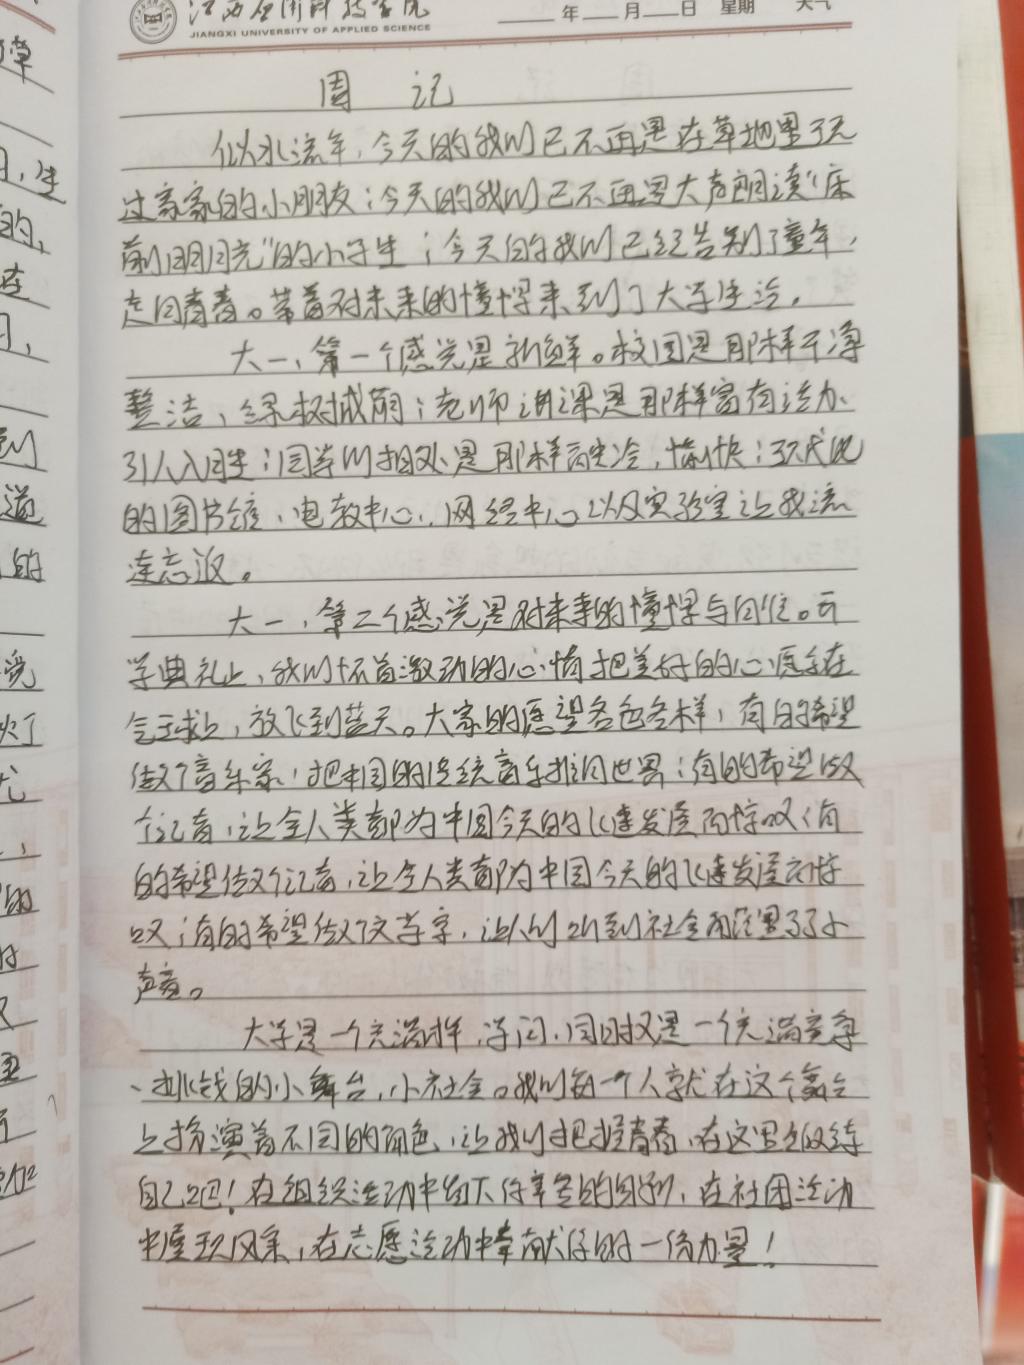 江西应用科技学院
JIANGXI UNIVERSITY OF APPLIED SCIENCE
年 月 日 星期 天气
周 记
似水流年，今天的我们已不再是在草地里玩
过家家的小朋友；今天的我们已不再是大声朗读“床
前明月光”的小学生；今天的我们已经告别了童年，
走向青春。带着对未来的憧憬来到了大学生活。
大一，第一个感觉是新鲜。校园是那样干净
整洁，绿树成荫；老师讲课是那样富有活力、
引人入胜；同学们相处是那样融洽，愉快；现代化
的图书馆、电教中心、网络中心以及实验室让我流
连忘返。
大一，第二个感觉是对未来的憧憬与向往。开
学典礼上，我们怀着激动的心情把美好的心愿系在
气球上，放飞到蓝天。大家的愿望各色各样，有的希望
做个音乐家，把中国的传统音乐推向世界；有的希望做
个记者，让全人类都为中国今天的飞速发展而惊叹；有
的希望做个记者，让全人类都为中国今天的飞速发展而惊
叹；有的希望做个文学家，让人们听到社会
声音。
大学是一个充满 学问，同时又是一个充满竞争
、挑战的小舞台，小社会。我们每一个人就在这个舞台
上扮演着不同的角色，让我们把握青春，在这里锻练
自己吧！在组织活动中留下你辛苦的身影，在社团活动
中展现风采，在志愿活动中奉献你的一份力量！
草
，生
的，
在
，
到
道
的
觉
了
的